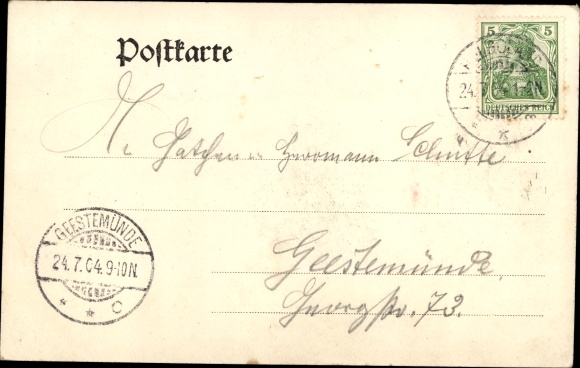 Postkarte
5 5
DEUTSCHES REICH
24.7.04 1-2N
Hermann Schütte
GEESTEMÜNDE
24.7.04.9-10N
* * C
Geestemünde
Georgstr. 73.